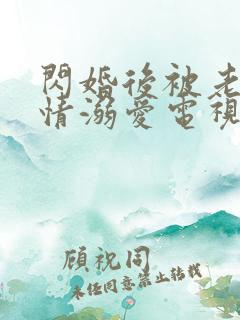 閃婚後被老
情溺愛電視
顧祝同
未經同意禁止轉載